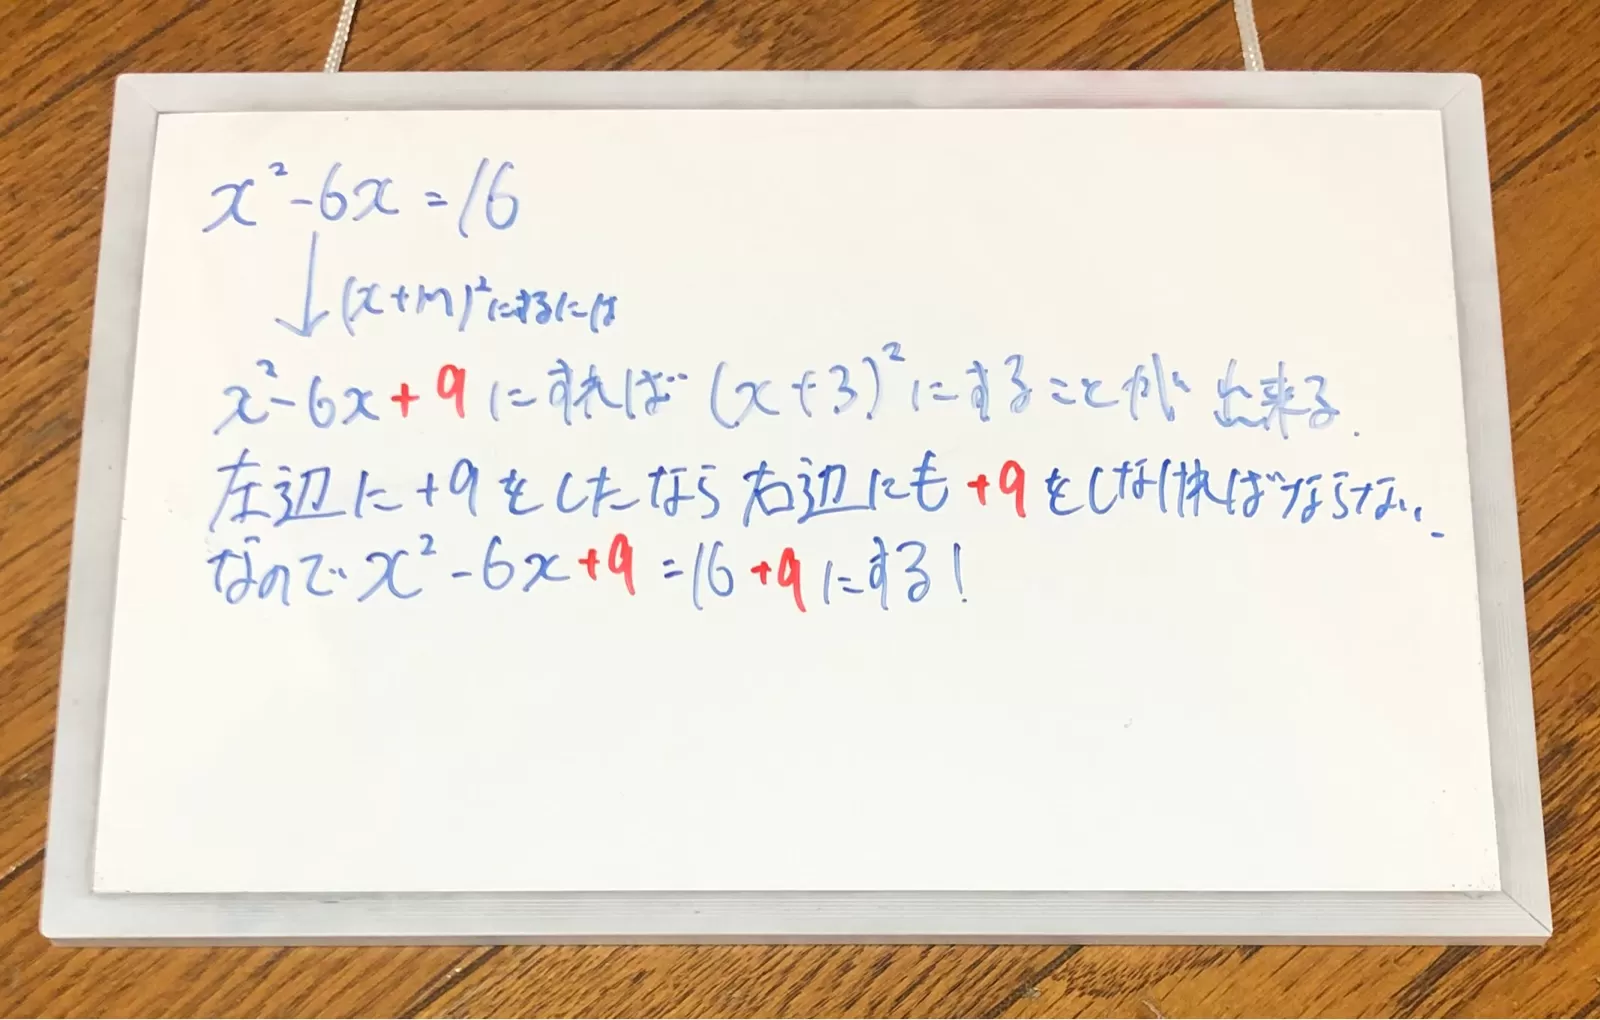 x²-6x=16
↓(x+m)²にするには
x²-6x+9にすれば(x+3)²にすることが出来る.
左辺に+9をしたなら右辺にも+9をしなければならない.
なのでx²-6x+9=16+9にする!